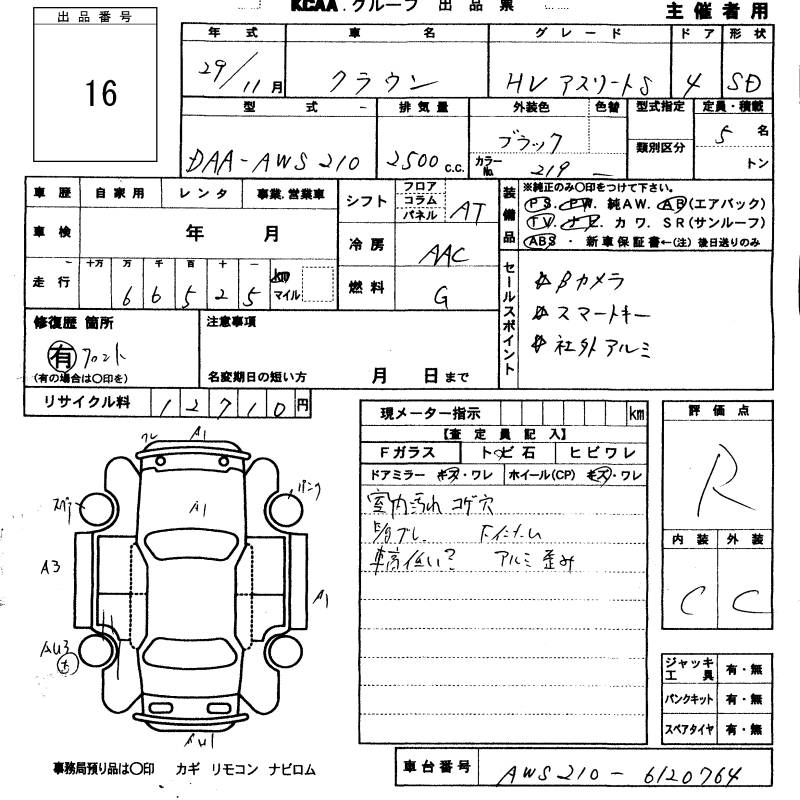 KCAA.グループ 出品票
主催者用
出品番号
16
年式 車名 グレード ドア 形状
29/11月 クラウン HV アスリートS 4 SD
型式 排気量 外装色 色替 型式指定 定員・積載
類別区分
DAA-AWS210 2500 c.c. ブラック 5名
カラーNo. 219 トン
車歴 自家用 レンタ 事業,営業車
車検 年 月
走行 十万 万 千 百 十 一
66525 km マイル
シフト フロア コラム パネル AT
冷房 AAC
燃料 G
装備品
※純正のみ〇印をつけて下さい。
PS. PW. 純AW. AB(エアバック)
TV. ナビ. カワ. SR(サンルーフ)
ABS ・ 新車保証書←(注) 後日送りのみ
セールスポイント
☆ Bカメラ
☆ スマートキー
☆ 社外アルミ
修復歴 箇所
有 フロント
(有の場合は〇印を)
注意事項
名変期日の短い方 月 日まで
リサイクル料 12710円
現メーター指示 km
【査定員記入】
Fガラス トビ石 ヒビワレ
ドアミラー キズ・ワレ ホイール(CP) キズ・ワレ
室内汚れ コゲ穴
車高低い? アルミ歪み
評価点
R
内装 外装
C C
ジャッキ工具 有・無
パンクキット 有・無
スペアタイヤ 有・無
A1
ワレ
A1
スペア
パンク
A3
A1
AU3
AU1
事務局預り品は〇印 カギ リモコン ナビロム
車台番号 AWS210-6120764